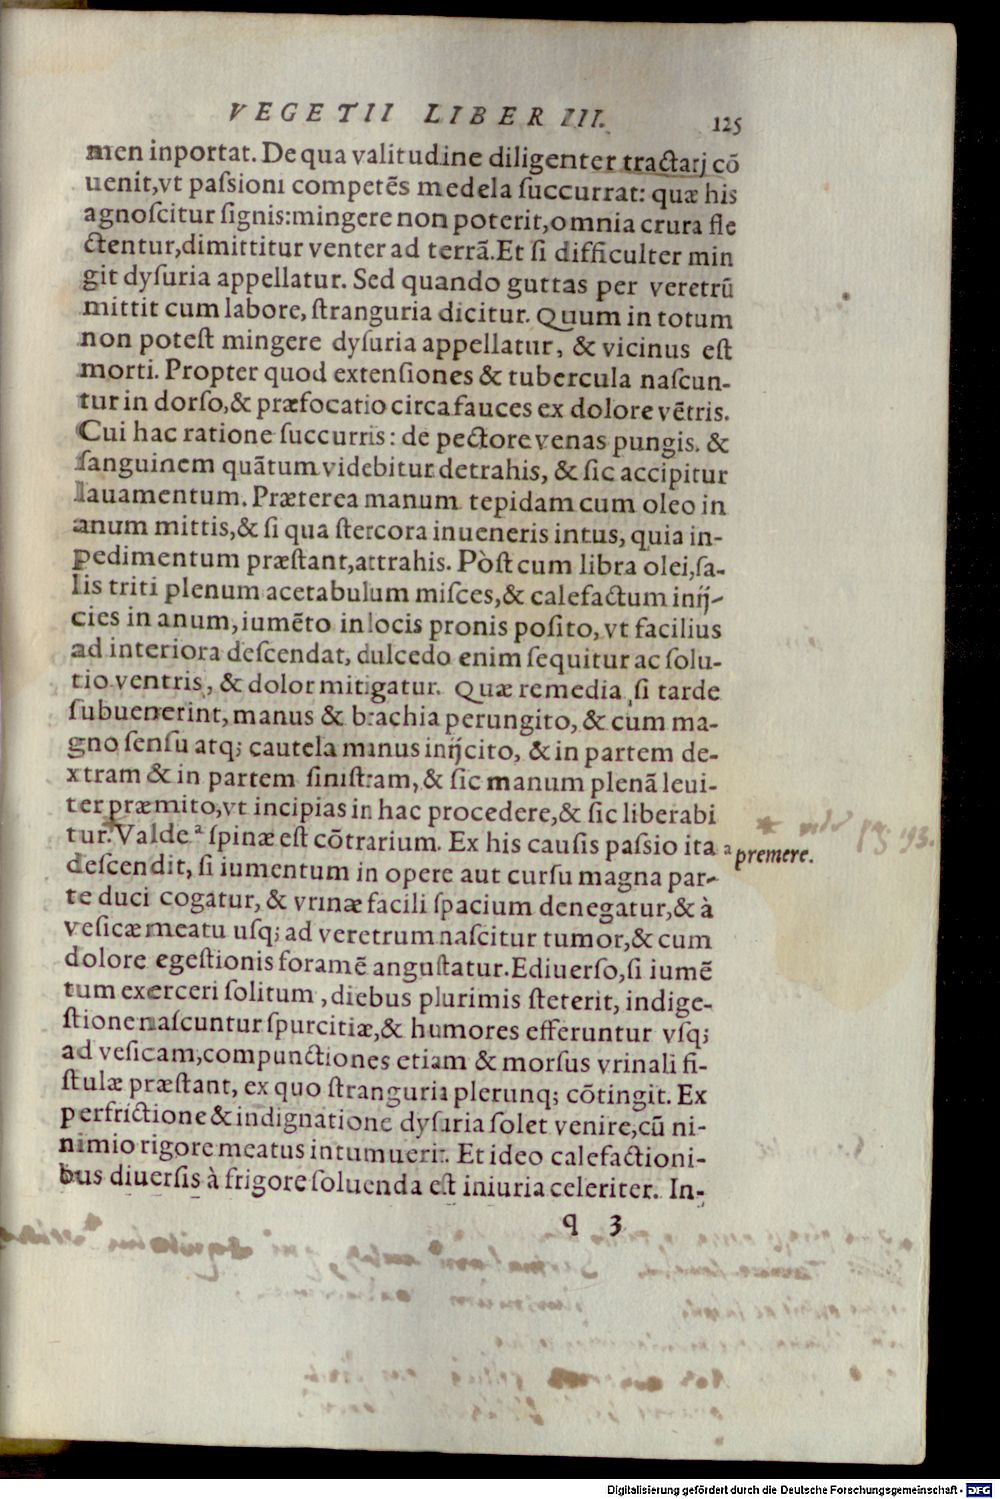 VEGETII LIBER III. 125
men inportat. De qua valitudine diligenter tractarj cō
uenit,vt paſsioni competēs medela ſuccurrat: quæ his
agnoſcitur ſignis:mingere non poterit,omnia crura fle
ctentur,dimittitur venter ad terrā.Et ſi difficulter min
git dyſuria appellatur. Sed quando guttas per veretrū
mittit cum labore, ſtranguria dicitur. Quum in totum
non poteſt mingere dyſuria appellatur, & vicinus eſt
morti. Propter quod extenſiones & tubercula naſcun-
tur in dorſo,& præfocatio circa fauces ex dolore vētris.
Cui hac ratione ſuccurris: de pectore venas pungis. &
ſanguinem quātum videbitur detrahis, & ſic accipitur
lauamentum. Præterea manum tepidam cum oleo in
anum mittis,& ſi qua ſtercora inueneris intus, quia in-
pedimentum præſtant,attrahis. Pòſt cum libra olei,ſa-
lis triti plenum acetabulum miſces,& calefactum inij-
cies in anum, iumēto in locis pronis poſito, vt facilius
ad interiora deſcendat, dulcedo enim ſequitur ac ſolu-
tio ventris, & dolor mitigatur. Quæ remedia ſi tarde
ſubuenerint, manus & brachia perungito, & cum ma-
gno ſenſu atq; cautela manus inijcito, & in partem de-
xtram & in partem ſiniſtram, & ſic manum plenā leui-
ter præmito,vt incipias in hac procedere,& ſic liberabi
tur. Valde ᵃ ſpinæ eſt cōtrarium. Ex his cauſis paſsio ita
ᵃ premere.
pag. 193.
deſcendit, ſi iumentum in opere aut curſu magna par-
te duci cogatur, & vrinæ facili ſpacium denegatur,& à
veſicæ meatu uſq; ad veretrum naſcitur tumor,& cum
dolore egeſtionis foramē anguſtatur. E diuerſo, ſi iumē
tum exerceri ſolitum, diebus plurimis ſteterit, indige-
ſtione naſcuntur ſpurcitiæ,& humores efferuntur vſq;
ad veſicam,compunctiones etiam & morſus vrinali fi-
ſtulæ præſtant, ex quo ſtranguria plerunq; cōtingit. Ex
perfrictione & indignatione dyſuria ſolet venire,cū ni-
nimio rigore meatus intumuerit. Et ideo calefactioni-
bus diuerſis à frigore ſoluenda eſt iniuria celeriter. In-
q 3
Digitalisierung gefördert durch die Deutsche Forschungsgemeinschaft - DFG